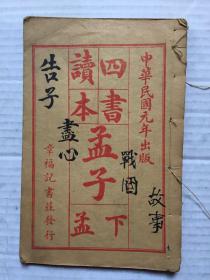 中華民國元年出版
故事
四書
讀本
孟子
戰國
下
孟
告子
盡心
章福記書莊發行